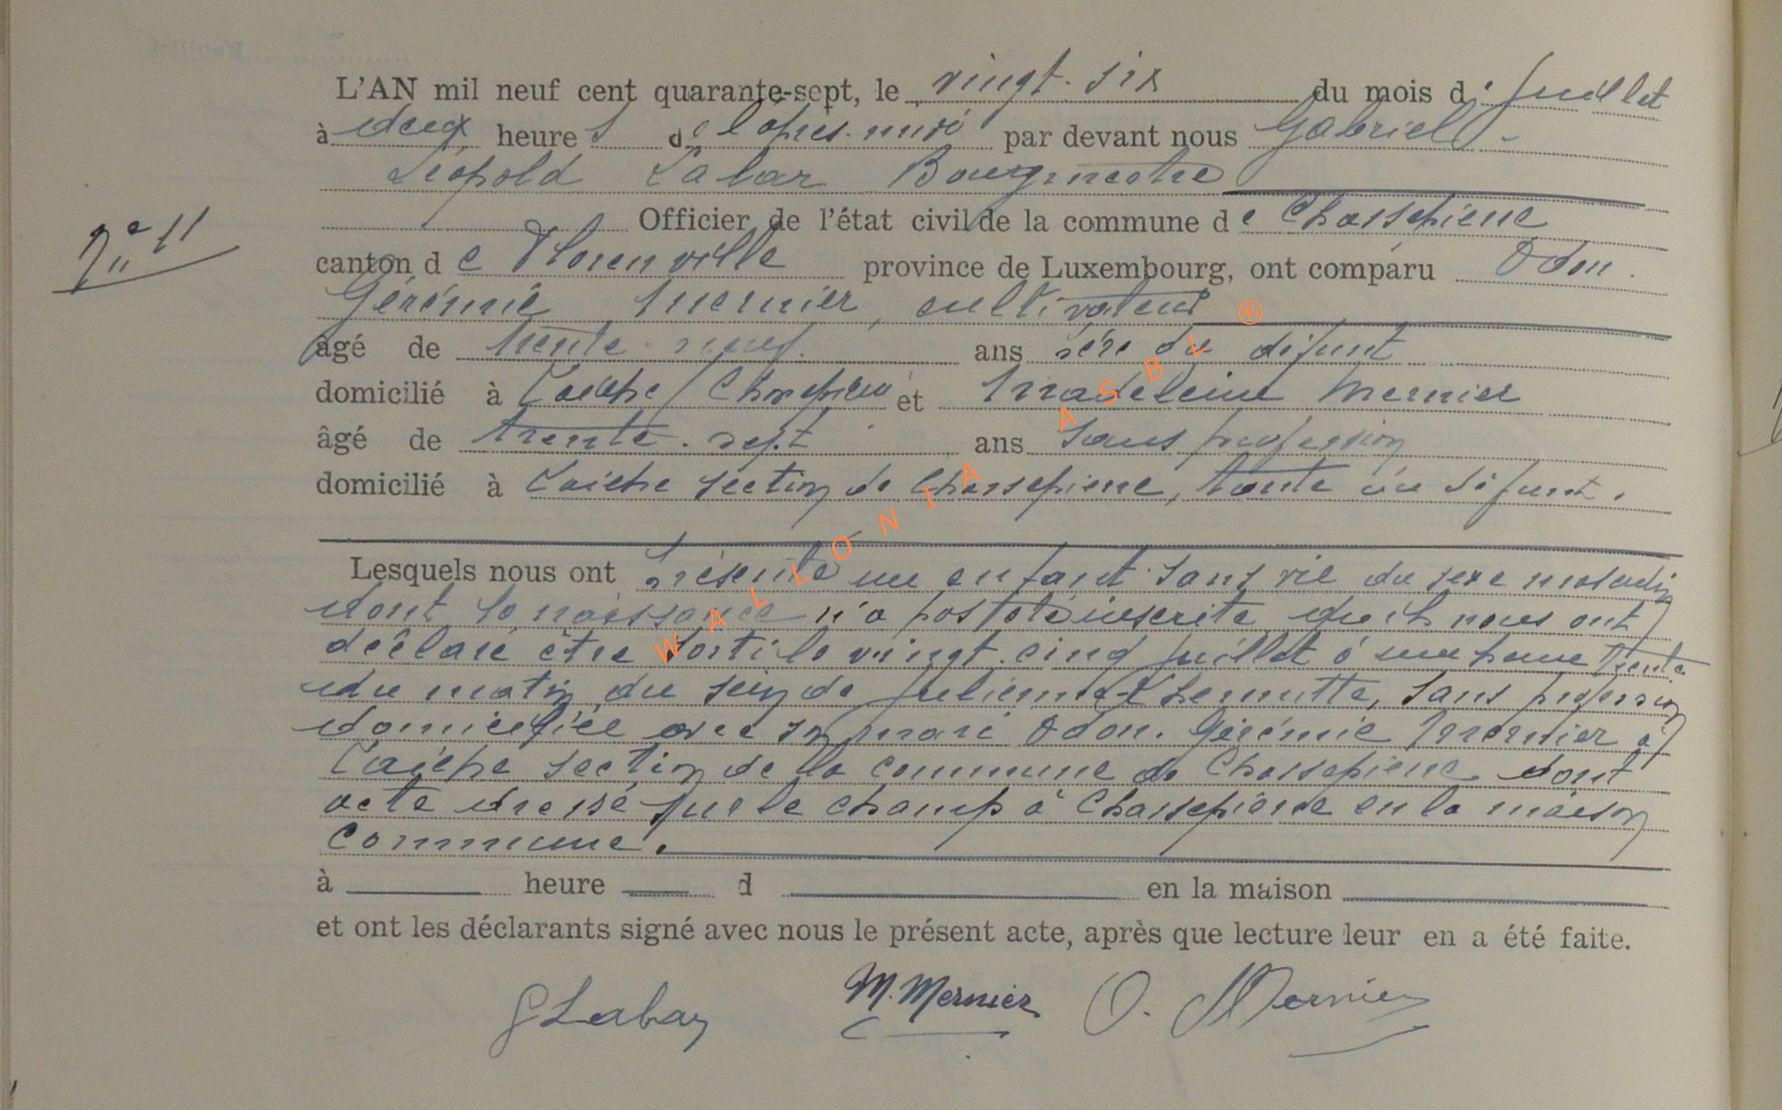 L'AN mil neuf cent quarante-sept, le vingt-six du mois de juillet
à deux heures de l'après-midi par devant nous Gabriel-
Léopold Labar Bourgmestre
Officier de l'état civil de la commune de Chassepierre
N° 11
canton de Florenville province de Luxembourg, ont comparu Odon-
Gérémie Mernier, cultivateur
âgé de trente-neuf ans père du défunt
domicilié à Laiche / Chassepierre et Madeleine Mernier
âgé de trente-sept ans sans profession
domicilié à Laiche section de Chassepierre, tante du défunt.
Lesquels nous ont présenté un enfant sans vie du sexe masculin
dont la naissance n'a pas été inscrite, qu'ils nous ont
déclaré être sorti le vingt-cinq juillet à une heure trente
du matin du sein de Julienne Lhermitte, sans profession
domiciliée avec son mari Odon-Gérémie Mernier à
Laiche section de la commune de Chassepierre dont
acte dressé sur le champ à Chassepierre en la maison
commune.
à heure d en la maison
et ont les déclarants signé avec nous le présent acte, après que lecture leur en a été faite.
G Labar M. Mernier O. Mernier
WALLONIA ASBL ®